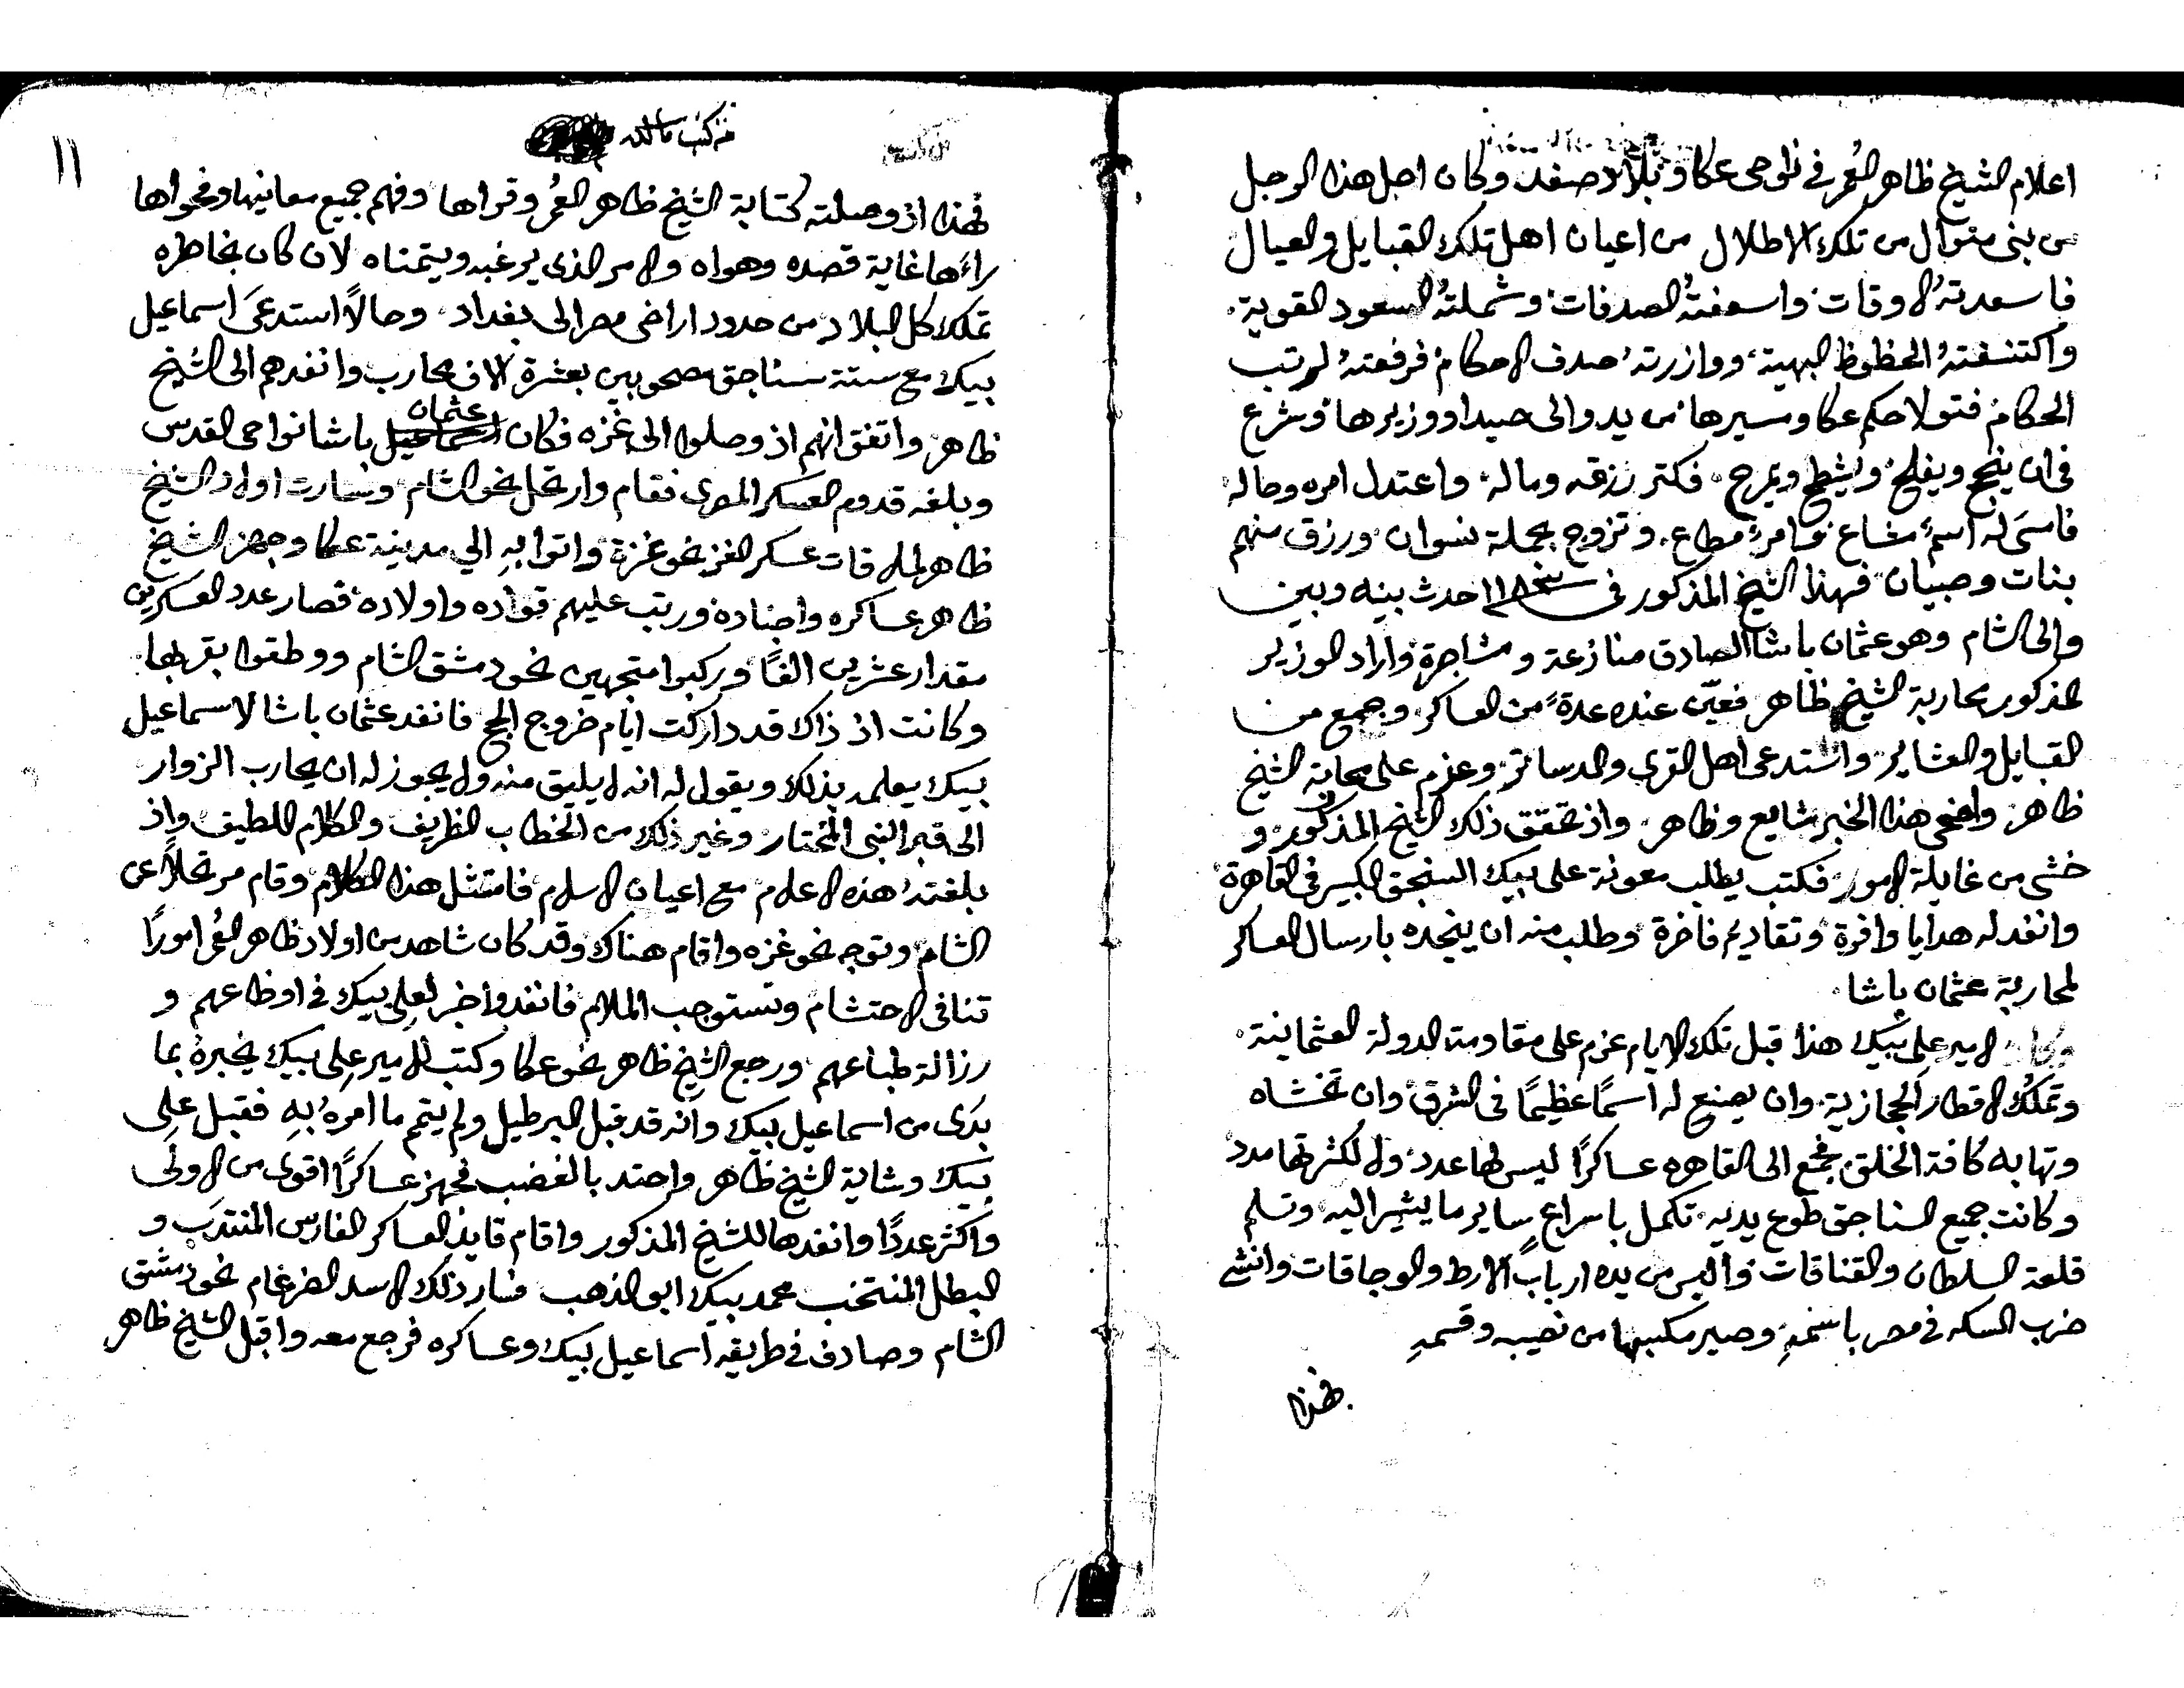 اعلام الشيخ ظاهر العُمر في نواحي عكا وبلاد صفد وكان اصل هذا الرجل
من بني متوال من تلك الاطلال من اعيان اهل تلك القبايل والعيال
فاسعدتهُ الاوقات واسعفتهُ الصدفات وشملتهُ السعود القوية
واكتنفتهُ الحظوظ البهية ووازرتهُ صدف الاحكام فرفعتهُ لرتب
الحكام فتولا حكم عكا وسيرها من يد والى صيدا ووزيرها وشرع
في ان ينجح ويفلح ويشطح ويمرح فكتر رزقه وماله واعتدل امره وحاله
فاسىَ له اسمٌ مشاع وامرٌ مطاع وتزوج بجملة نسوان ورزق منهم
بنات وصبيان فهذا الشيخ المذكور في سنة حدث بينه وبين
والى الشام وهو عثمان باشا الصادق منازعة ومشاجرة واراد الوزير
المذكور محاربة الشيخ ظاهر فعيّن عنده عدةً من العساكر وجمع من
القبايل والعشاير واستدعى اهل القرى والدساكر وعزم على محاربة الشيخ
ظاهر واضحى هذا الخبر شايع وظاهر واذ تحقق ذلك الشيخ المذكور و
خشى من غايلة الامور فكتب يطلب معونة على بيك السنجق الكبير في القاهرة
وانفد له هدايا وافرة وتقاديم فاخرة وطلب منه ان ينجده بارسال العساكر
لمحاربة عثمان باشا
وكان الامير على بيك هذا قبل تلك الايام عزم على مقاومة الدولة العثمانية
وتملك الاقطار الحجازية وان يصنع له اسمًا عظيمًا في الشرق وان تخشاه
وتهابه كافة الخلق فجمع الى القاهره عساكرًا ليس لها عدد ولا لكثرتها مدد
وكانت جميع السناجق طوع يديه تكمل باسراعٍ ساير ما يشير اليه وتسلم
قلعة السلطان والقناقات والبس من يده ارباب الارط والوجاقات وانشى
ضرب السكه في مصر باسمهِ وصير مكسبها من نصيبه وقسمهِ
فهذا
من كتب
١١
فهذا اذ وصلته كتابة الشيخ ظاهر العُمر وقراها وفهم جميع معانيها وفحواها
راءَها غاية قصده وهواه والامر الذي يرغبه ويتمناه لان كان بخاطره
تملك كل البلاد من حدود اراضى مصر الى بغداد وحالاً استدعىَ اسماعيل
بيك مع ستة سناجق مصحوبين بعشرة الاف محارب وانفدهم الى الشيخ
ظاهر واتفق انهم اذ وصلوا الى غزه فكان عثمان باشا نواحى القدس
وبلغه قدوم العسكر المصرى فقام وارتحل نحو الشام وسارت اولاد الشيخ
ظاهر لملاقات عسكر الغز نحو غزة واتوا بهِ الي مدينة عكا وجهز الشيخ
ظاهر عساكره واجناده ورتب عليهم قواده واولاده فصار عدد العسكرين
مقدار عشرين الفًا وركبوا متجهين نحو دمشق الشام ووطقوا بقربها
وكانت اذ ذاك قد داركت ايام خروج الحج فانفد عثمان باشا لاسماعيل
بيك يعلمه بذلك ويقول له انه لا يليق منه ولا يجوز له ان يحارب الزوار
الى قبر النبى المختار وغير ذلك من الخطاب الظريف والكلام اللطيف واذ
بلغتهُ هذه الاعلام مع اعيان الاسلام فامتثل هذا الكلام وقام مرتحلاً عن
الشام وتوجه نحو غزه واقام هناك وقد كان شاهد من اولاد ظاهر العُمر امورًا
تنافى الاحتشام وتستوجب الملام فانفد واخبر لعلى بيك في اوضاعهم و
رزالة طباعهم ورجع الشيخ ظاهر نحو عكا وكتب للامير على بيك يخبرهُ بما
بدَى من اسماعيل بيك وانه قد قبل البرطيل ولم يتمم ما امرهُ بهِ فقبل على
بيك وشاية الشيخ ظاهر واحتد بالغضب فجهز عساكرًا اقوى من الاولَى
واكثر عددًا وانفدها للشيخ المذكور واقام قايد العساكر الفارس المنتدَب و
البطل المنتخب محمد بيك ابو الذهب فسار ذلك الاسد الضرغام نحو دمشق
الشام وصادف في طريقه اسماعيل بيك وعساكره فرجع معه واقبل الشيخ ظاهر